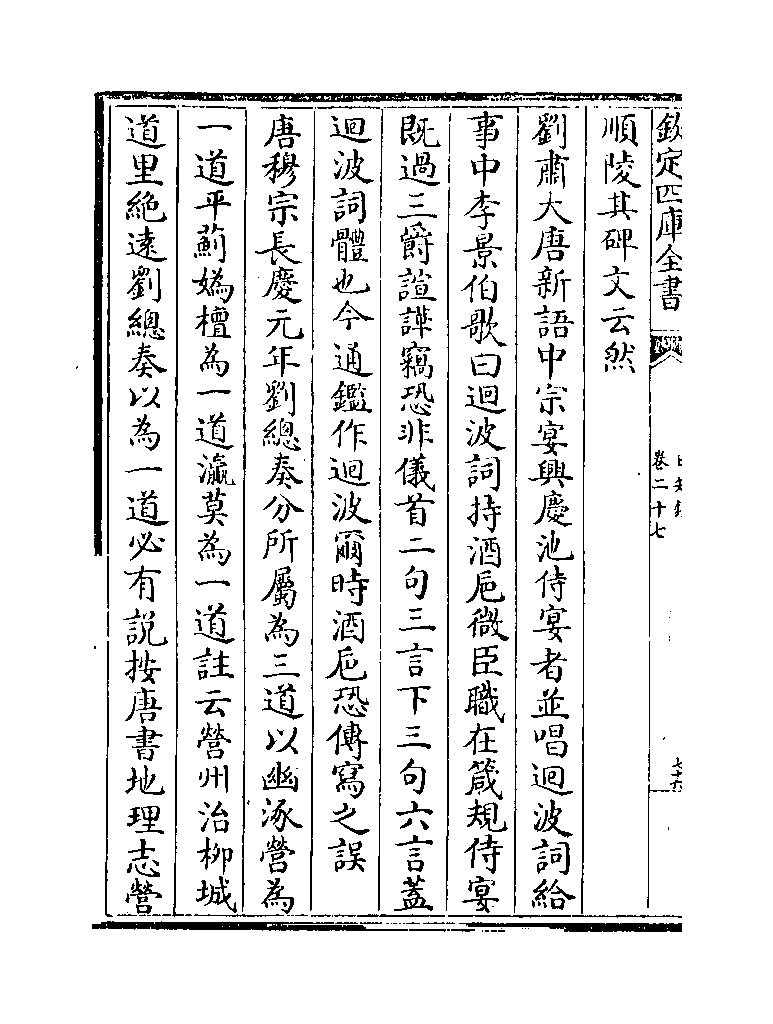 欽定四庫全書
卷二十七
順陵其碑文云然
劉肅大唐新語中宗宴興慶池侍宴者並唱迴波詞給
事中李景伯歌曰迴波詞持酒巵微臣職在箴規侍宴
既過三爵諠譁竊恐非儀首二句三言下三句六言蓋
迴波詞體也今通鑑作迴波爾時酒巵恐傳寫之誤
唐穆宗長慶元年劉總奏分所屬為三道以幽涿營為
一道平薊媯檀為一道瀛莫為一道註云營州治柳城
道里絶遠劉總奏以為一道必有説按唐書地理志營